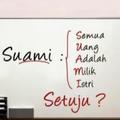 Semua
Uang
Suami : Adalah
Milik
Istri
Setuju ?